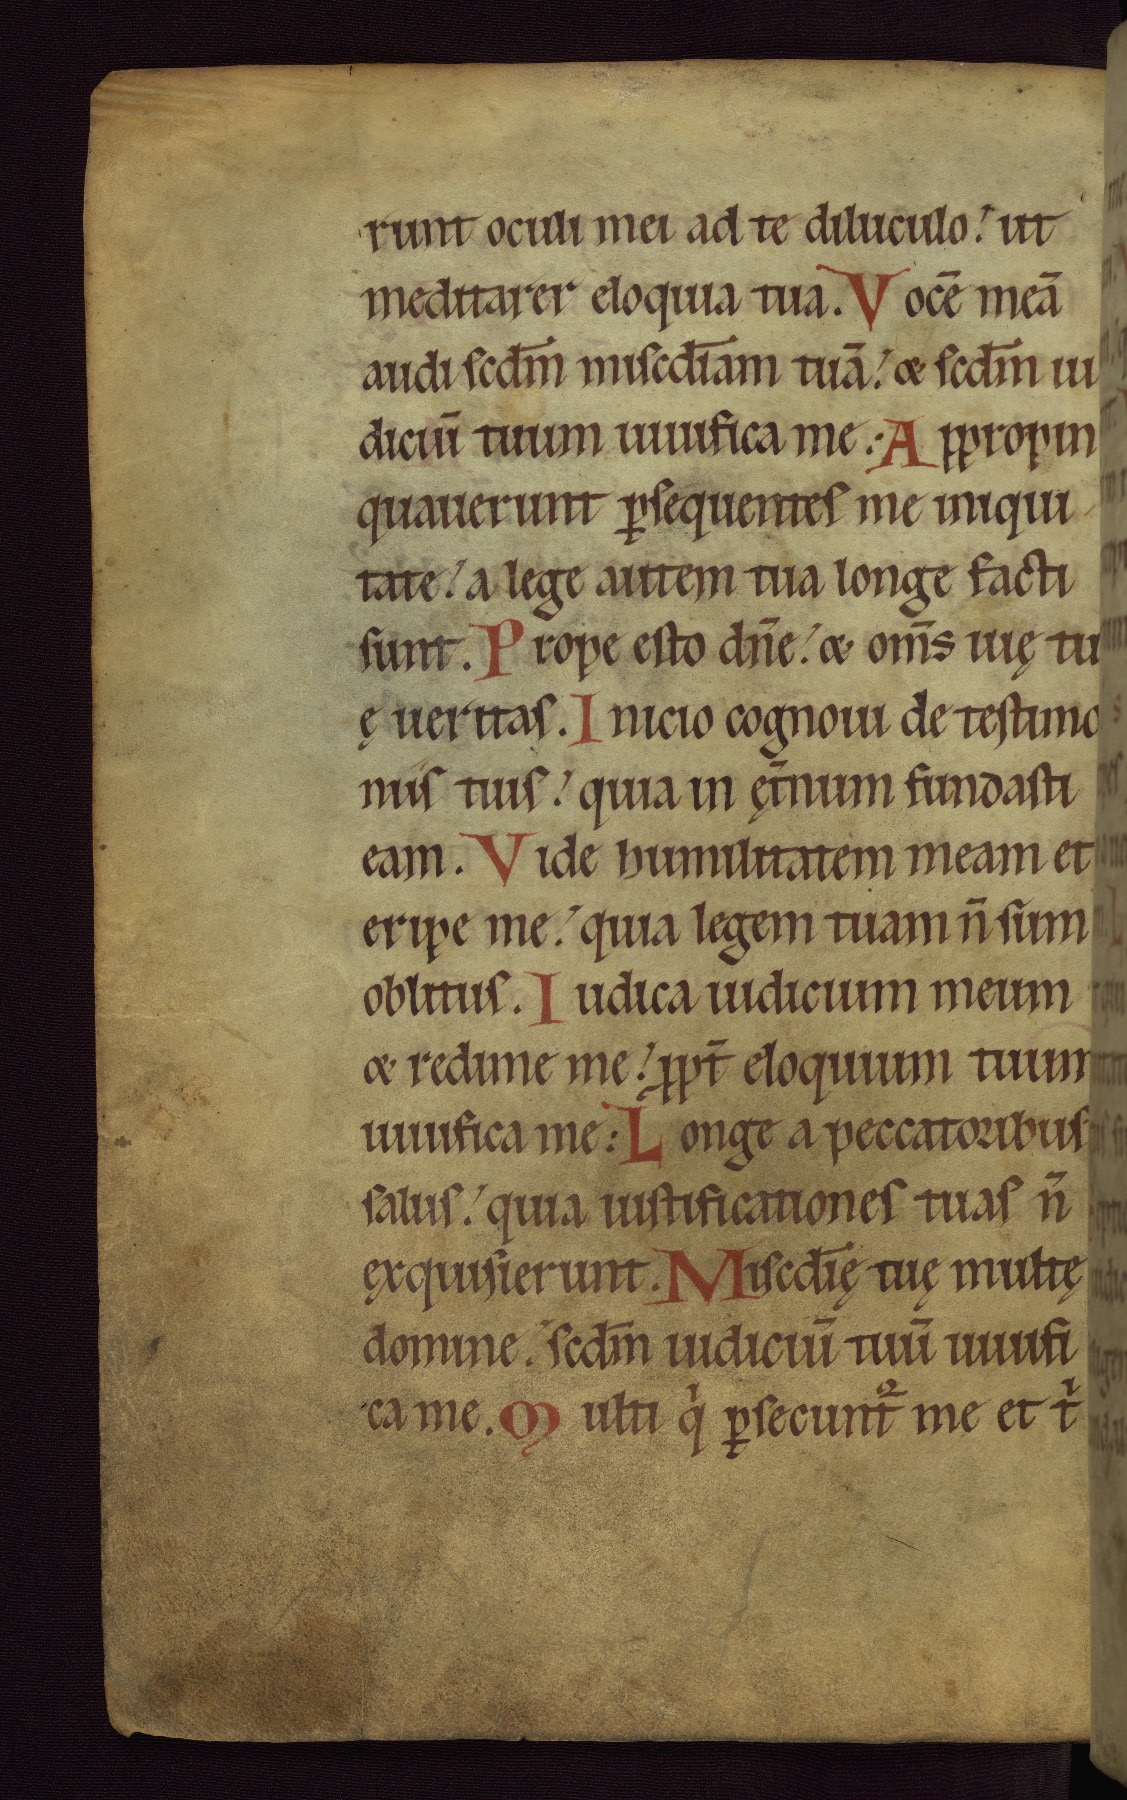 runt oculi mei ad te diluculo: ut
meditarer eloquia tua. Vocē meā
audi scdm̄ miscdīam tuā: & scdm̄ iu
diciū tuum uiuifica me: Appropin
quauerunt ꝑsequentes me iniqui
tate: a lege autem tua longe facti
sunt. Prope esto dn̄e: & om̄s uię tu
ę ueritas. Inicio cognoui de testimo
niis tuis: quia in ęt̄num fundasti
eam. Vide humilitatem meam et
eripe me: quia legem tuam n̄ sum
oblitus. Iudica iudicium meum
& redime me: ꝓpt̄ eloquium tuum
uiuifica me: Longe a peccatoribus
salus: quia iustificationes tuas n̄
exquisierunt. Miscdīę tuę multę
domine: scdm̄ iudiciū tuū uiuifi
ca me. Multi qⁱ ꝑsecunt᷑ me et tⁱ